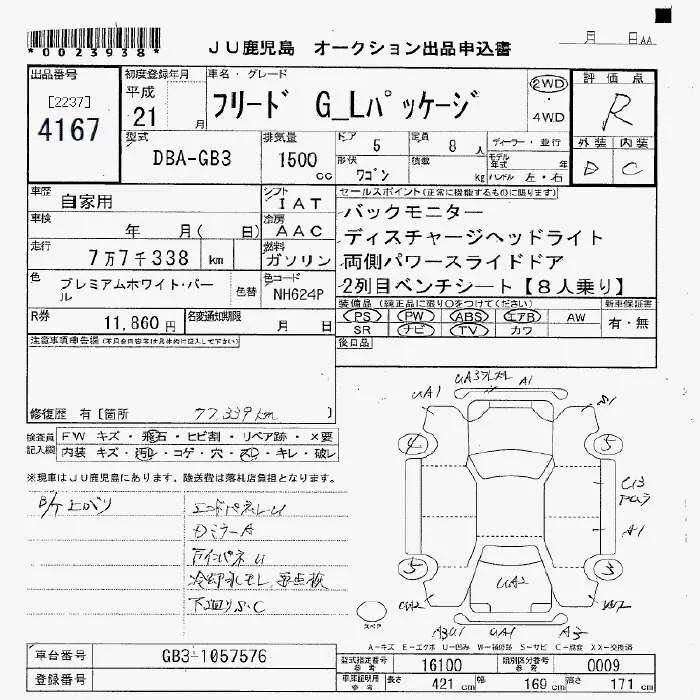 *0023938*
JU鹿児島 オークション出品申込書
月 日AA
出品番号
[2237]
4167
初度登録年月
平成
21 月
車名・グレード
フリード G_Lパッケージ
2WD
・
4WD
評価点
R
外装 内装
D C
型式
DBA-GB3
排気量
1500 cc
ドア
5
定員
8 人
ディーラー・並行
形状
ワゴン
積載
kg
モデル年式 年
ハンドル 左・右
車歴
自家用
シフト
IAT
車検
年 月( 日)
冷房
AAC
走行
7万7千338 km
燃料
ガソリン
色
プレミアムホワイト・パール
色替
色コード
NH624P
R券
11,860 円
名変通知期限
月 日
セールスポイント(正常に機能するものに限ります)
バックモニター
ディスチャージヘッドライト
両側パワースライドドア
2列目ベンチシート【8人乗り】
装備品(純正品に限り○をつけてください)
PS PW ABS エアB AW
SR ナビ TV カワ
新車保証書
有・無
後日品
注意事項申告欄
修復歴 有[箇所 77,339km ]
検査員記入欄
FW キズ・飛石・ヒビ割・リペア跡・×要
内装 キズ・汚レ・コゲ・穴・スレ・キレ・破レ
※現車はJU鹿児島にあります。陸送費は落札店負担となります。
エンドパネルU
Dミラー A
冷却水モレ、要点検
下廻りS.C
UA1
A1
S1
4
5
A1
5
3
UA2
UA2
UA1
スペア
A-キズ E-エクボ U-凹み W-補修跡 S-サビ C-腐食 XX-交換済
車台番号
GB3-1057576
登録番号
型式指定番号 参考
16100
類別区分番号 参考
0009
車庫証明用 参考
長さ 421 cm 幅 169 cm 高さ 171 cm